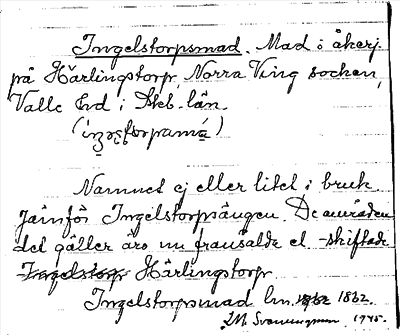 Ingelstorpsmad. Mad o åkerj.
på Härlingstorp, Norra Ving socken,
Valle hd i Skb. län.
Namnet ej eller litet i bruk.
Jämför Ingelstorpsängen. De områden
det gäller äro nu frånsålda el. -skiftade
Ingelstorp Härlingstorp
Ingelstorpsmad lm. 1862 1862.
1945.